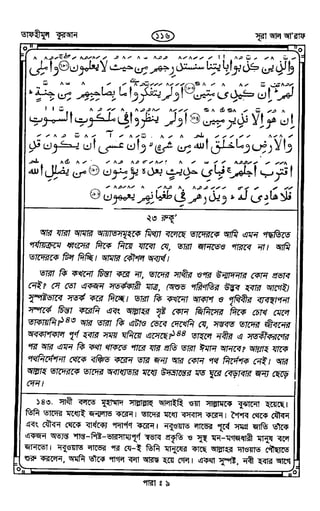 তাফহীমুল কুরআন
১১৬
সূরা আল আ'রাফ
وَالَّذِينَ كَذَّبُوا بِآيَاتِنَا سَنَسْتَدْرِجُهُمْ مِنْ حَيْثُ لَا يَعْلَمُونَ ۞ وَأُمْلِي
لَهُمْ ۚ إِنَّ كَيْدِي مَتِينٌ ۞ أَوَلَمْ يَتَفَكَّرُوا ۗ مَا بِصَاحِبِهِمْ مِنْ جِنَّةٍ ۚ
إِنْ هُوَ إِلَّا نَذِيرٌ مُبِينٌ ۞ أَوَلَمْ يَنْظُرُوا فِي مَلَكُوتِ السَّمَوَتِ
وَالْأَرْضِ وَمَا خَلَقَ اللَّهُ مِنْ شَيْءٍ ۙ وَأَنْ عَسَى أَنْ يَكُونَ قَدِ
اقْتَرَبَ أَجَلُهُمْ ۚ فَبِأَيِّ حَدِيثٍ بَعْدَهُ يُؤْمِنُونَ ۞ مَنْ يُضْلِلِ اللَّهُ
فَلَا هَادِيَ لَهُ ۚ وَيَذَرُهُمْ فِي طُغْيَانِهِمْ يَعْمَهُونَ ۞
২৩ রুকূ'
আর যারা আমার আয়াতসমূহকে মিথ্যা বলেছে তাদেরকে আমি এমন পদ্ধতিতে
পর্যায়ক্রমে ধ্বংসের দিকে নিয়ে যাবো যে, তারা জানতেও পারবে না। আমি
তাদেরকে ঢিল দিচ্ছি। আমার কৌশল অব্যর্থ।
তারা কি কখনো চিন্তা করে না, তাদের সাথীর ওপর উন্মাদনার কোন প্রভাব
নেই? সে তো একজন সতর্ককারী মাত্র, (অশুভ পরিণতির উদ্ভব হবার আগেই)
সুস্পষ্টভাবে সতর্ক করে দিচ্ছে। তারা কি কখনো আকাশ ও পৃথিবীর ব্যবস্থাপনা
সম্পর্কে চিন্তা করেনি এবং আল্লাহর সৃষ্ট কোন জিনিসের দিকে চোখ মেলে
তাকায়নি?১৪৩ আর তারা কি এটাও ভেবে দেখেনি যে, সম্ভবত তাদের জীবনের
অবকাশকাল পূর্ণ হবার সময় ঘনিয়ে এসেছে?১৪৪ তাহলে নবীর এ সতর্কীকরণের
পর আর এমন কি কথা থাকতে পারে যার প্রতি তারা ঈমান আনবে? আল্লাহ যাকে
পথনির্দেশনা থেকে বঞ্চিত করেন তার জন্য আর কোন পথ নির্দেশক নেই। আর
আল্লাহ তাদেরকে তাদের অবাধ্যতার মধ্যে উদভ্রান্তের মত ঘুরে বেড়াবার জন্য ছেড়ে
দেন।
১৪৩. সাথী বলতে মুহাম্মাদ সাল্লাল্লাহু আলাইহি ওয়া সাল্লামকে বুঝানো হয়েছে।
তিনি তাদের মধ্যেই জন্মলাভ করেন। তাদের মধ্যে বসবাস করেন। শৈশব থেকে যৌবন
এবং যৌবন থেকে বার্ধক্যে পদার্পণ করেন। নবুওয়াত লাভের পূর্বে সমগ্র জাতি তাঁকে
একজন অত্যন্ত শান্ত-শিষ্ট-ভারসাম্যপূর্ণ স্বভাব প্রকৃতি ও সুস্থ মন-মগজধারী মানুষ বলে
জানতো। নবুওয়াত লাভের পর যে-ই তিনি মানুষের কাছে আল্লাহর দাওয়াত পৌঁছাতে
শুরু করলেন, অমনি তাঁকে পাগল বলা আরম্ভ হয়ে গেল। একথা সুস্পষ্ট, নবী হবার আগে
পারা : ৯